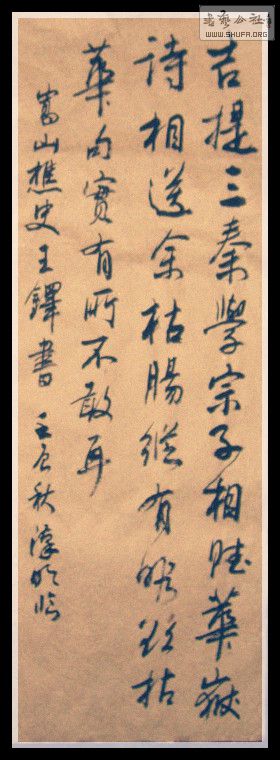 吉提三秦學宗子相賦華嶽
詩相送余枯腸縱有 枯
華向實有所不敢耳
嵩山樵史王鐸書 壬辰秋 臨
書藝公社
WWW.SHUFA.ORG